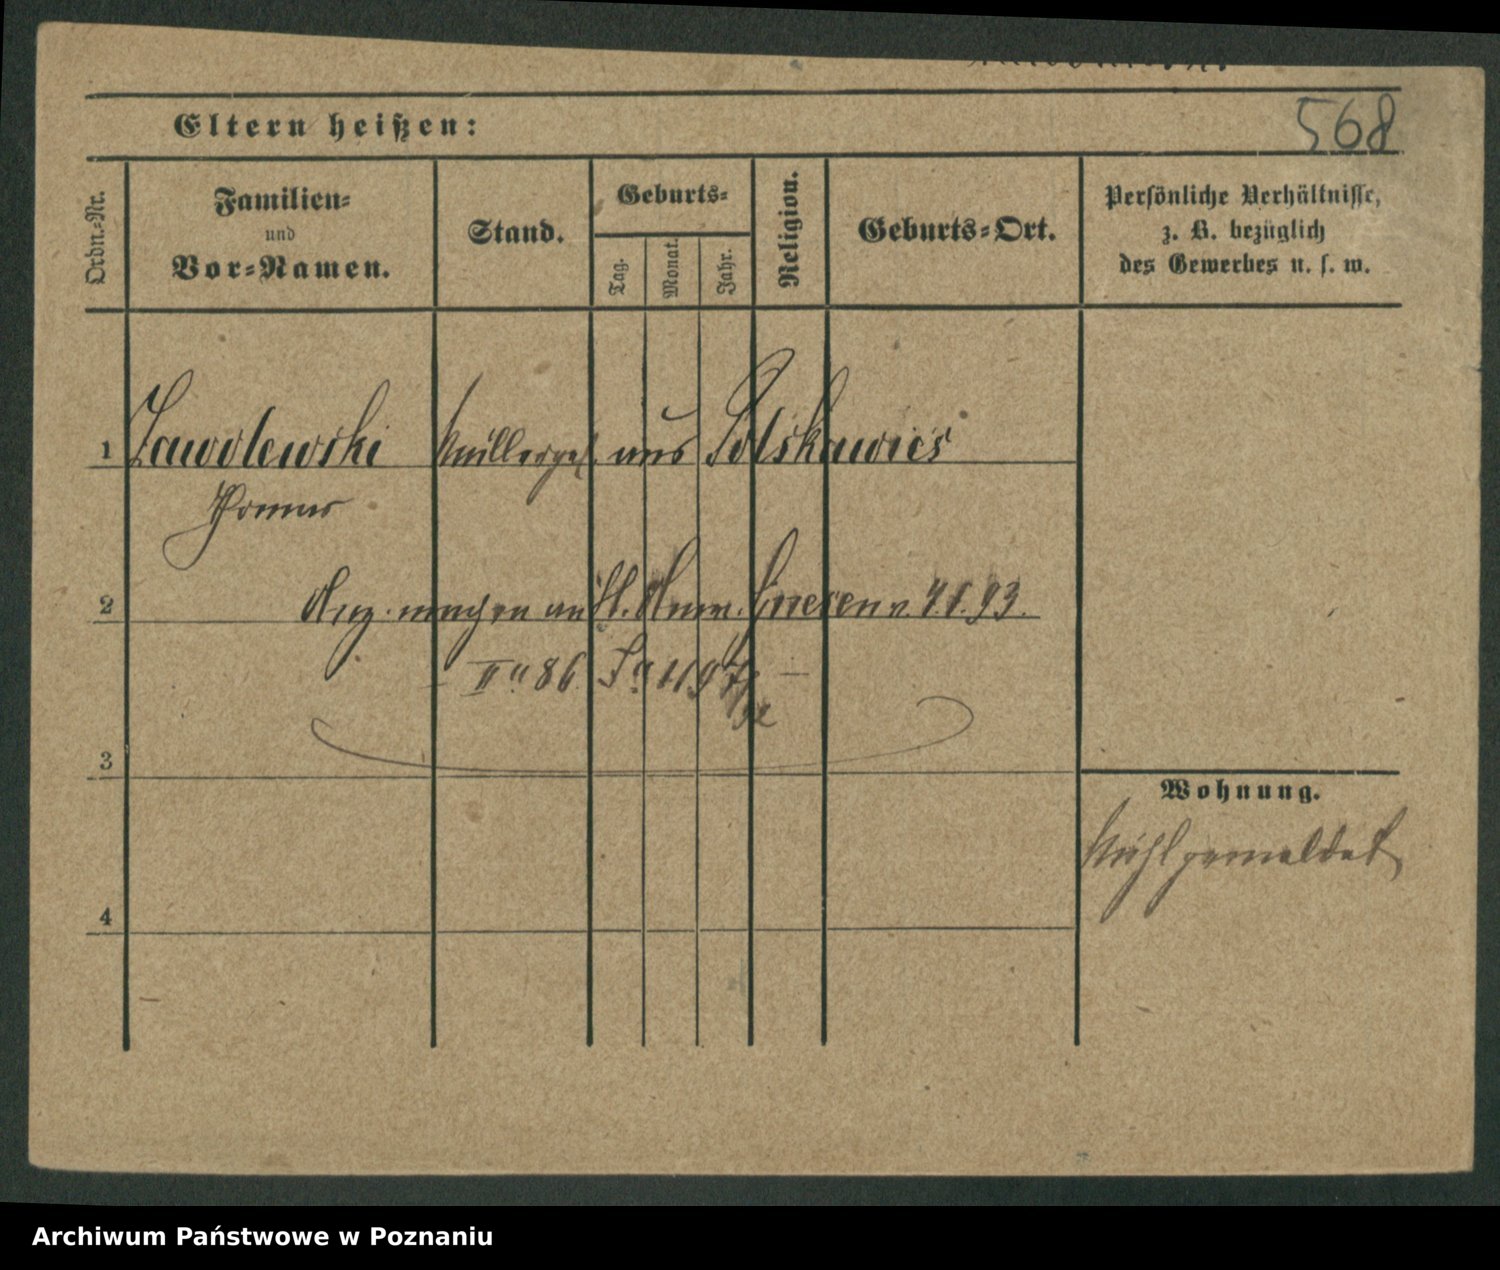 568
Eltern heißen:
Ordn.-Nr.
Familien-
und
Vor-Namen.
Stand.
Geburts-
Tag.
Monat.
Jahr.
Religion.
Geburts-Ort.
Persönliche Verhältnisse,
z. B. bezüglich
des Gewerbes u. s. w.
1 Zawolewski Müllerges. aus Polskawies
Thomas
2 Anz. wegen an St. Anw. Gnesen
II a 86
3
Wohnung.
gemeldet
4
Archiwum Państwowe w Poznaniu